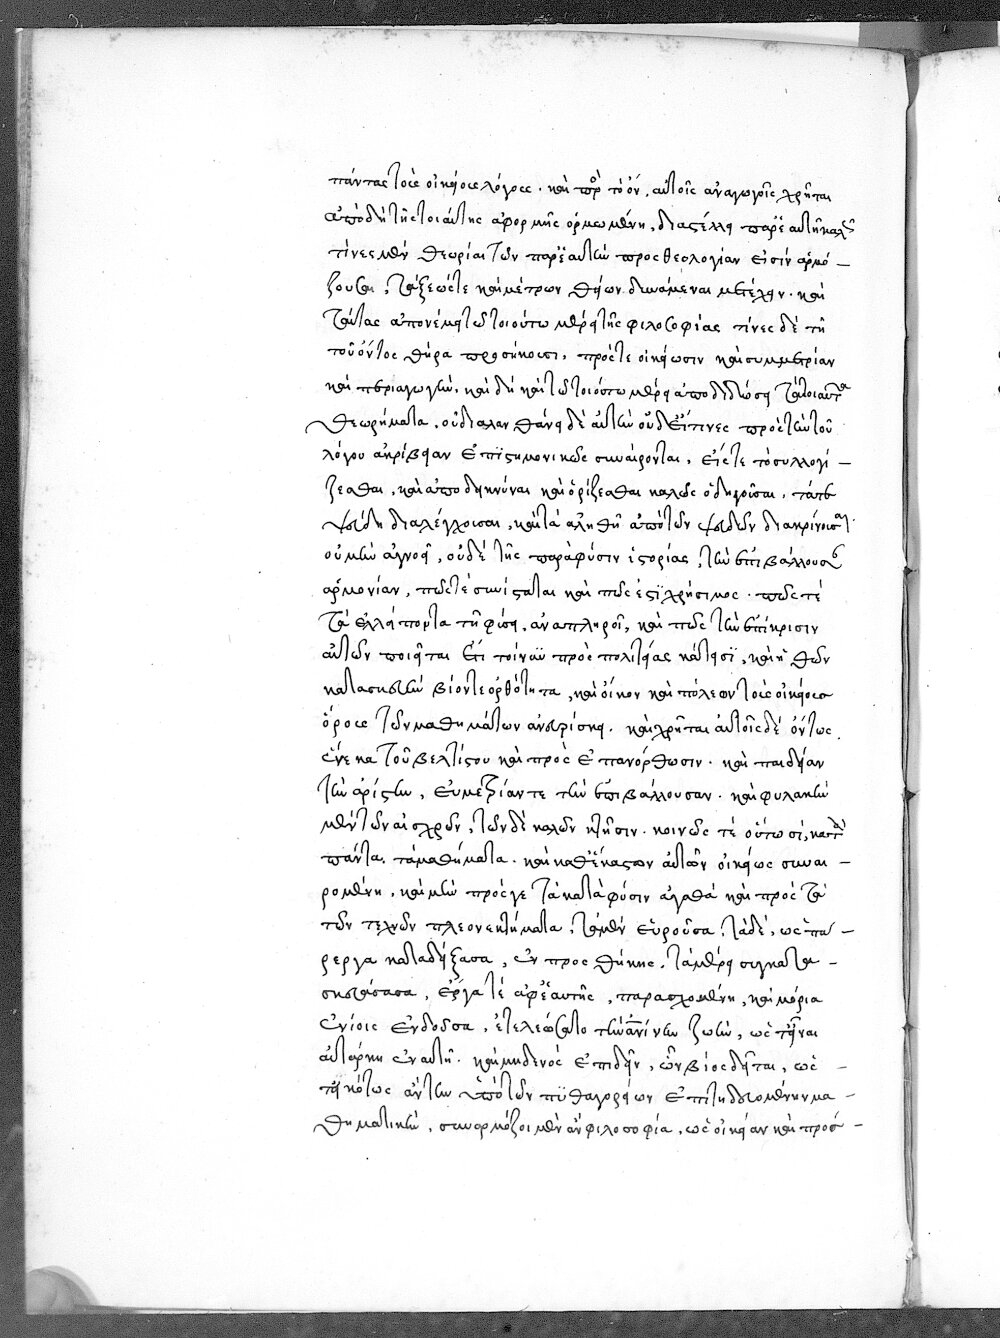 πάντας τοὺς οἰκείους λόγους. καὶ πρὸς τὸ ὂν, αὐτοῖς ἀναγωγοῖς χρῆται
ἀπὸ δὴ τῆς τοιαύτης ἀφορμῆς ὁρμωμένη, διαστέλλει παρ' ἑαυτῇ καλῶς
τίνες μὲν θεωρίαι τῶν παρ' ἑαυτῶν πρὸς θεολογίαν εἰσὶν ἁρμό –
ζουσαι, τάξεώς τε καὶ μέτρων θείων δυνάμεναι μετέχειν. καὶ
ταύτας ἀπονέμει τῷ τοιούτῳ μέρει τῆς φιλοσοφίας τίνες δὲ τῇ
τοῦ ὄντος θήρα προσήκουσι, πρός τε οἰκείωσιν καὶ συμμετρίαν
καὶ περιαγωγὴν, καὶ δὴ καὶ τῷ τοιούτῳ μέρει ἀποδιδώσει τὰ τοιαῦτα
θεωρήματα, οὐ διαλανθάνει δὲ αὐτὴν οὐδ' εἴ τινες πρὸς τὴν τοῦ
λόγου ἀκρίβειαν ἐπιστημονικῶς συναίρονται, εἴς τε τὸ συλλογί –
ζεσθαι, καὶ ἀποδεικνύναι καὶ ὁρίζεσθαι καλῶς ὁδηγοῦσαι, τά τε
ψευδῆ διαλέγχουσαι, καὶ τὰ ἀληθῆ ἀπὸ τῶν ψευδῶν διακρίνουσαι.
οὐ μὴν ἀγνοεῖ, οὐδὲ τῆς παρὰ φύσιν ἱστορίας, τὴν ἐπιβάλλουσαν
ἁρμονίαν, πῶς τε συνίσταται καὶ πῶς ἐστὶ χρήσιμος. πῶς τε
τὰ ἐλλείποντα τῇ φύσει, ἀναπληροῖ, καὶ πῶς τὴν ἐπίκρισιν
αὐτῶν ποιεῖται ἔτι τοίνυν πρὸς πολιτείας κάτεισι, καὶ ἠθῶν
κατασκευὴν βίον τε ὀρθότητα, καὶ οἴκον καὶ πόλεων τοὺς οἰκείους
ὅρους τῶν μαθημάτων ἀνευρίσκει. καὶ χρῆται αὐτοῖς δέοντως
ἕνεκα τοῦ βελτίστου καὶ πρὸς ἐπανόρθωσιν. καὶ παιδείαν
τὴν ἀρίστην, εὐμετρίαν τε τὴν ἐπιβάλλουσαν. καὶ φυλακὴν
μὲν τῶν αἰσχρῶν, τῶν δὲ καλῶν κτῆσιν. κοινῶς τέ οὑτωσί, κατὰ
πάντα. τὰ μαθήματα. καὶ καθ' ἕκαστον αὐτῶν οἰκείως συναι –
ρομένη, καὶ μὴν πρός γε τὰ κατὰ φύσιν ἀγαθὰ καὶ πρὸς τὰ
τῶν τεχνῶν πλεονεκτήματα, τὰ μὲν εὑροῦσα, τὰ δὲ, ὡς πά –
ρεργα καταδείξασα, ἐν προσθήκης, τὰ μέρη συγκατα –
σκευάσασα, ἔργα τὲ ἀφ' ἑαυτῆς, παρασχομένη, καὶ μόρια
ἐνίοις ἐνδοῦσα, ἐτελεώσατο τὴν ἀνθρωπίνην ζωὴν, ὡς εἶναι
αὐτάρκη ἐν αὐτῇ. καὶ μηδενὸς ἐπιδεῆ, ὧν βίος δεῖται, ὡς –
εἰκότως ἂν τὴν ὑπὸ τῶν πυθαγορείων ἐπιτηδευομένην μα –
θηματικὴν, συναρμόζοι μὲν ἂν φιλοσοφία, ὡς οἰκείαν καὶ προσ –